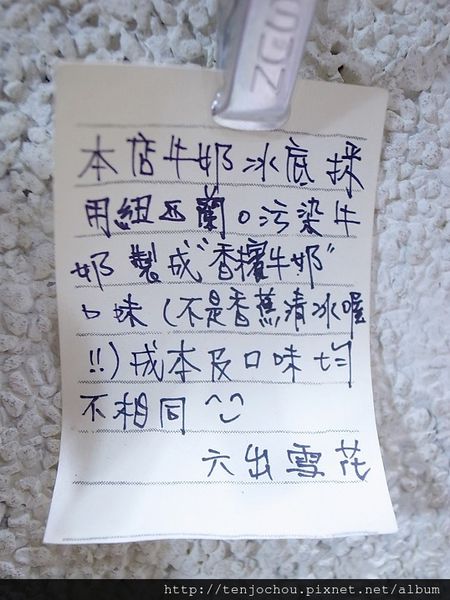 本店牛奶冰底採
用紐西蘭0污染牛
奶製成"香檳牛奶"
口味(不是香蕉清冰喔
!!)成本及口味均
不相同^^
六出雪花
http://tenjochou.pixnet.net/album